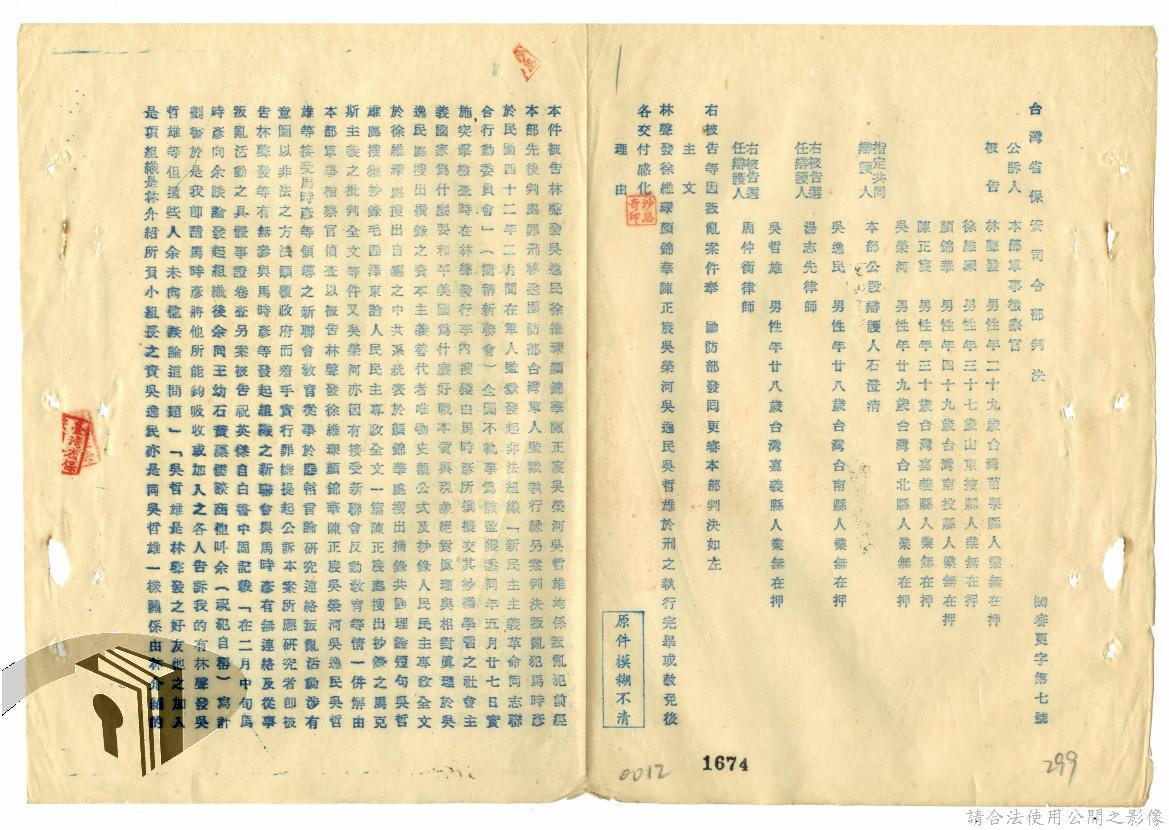 台灣省保安司令部判決
㈣審更字第七號
公訴人 本部軍事檢察官
被告 林聲發 男性年二十九歲台灣苗栗縣人業無在押
徐維琛 男性年三十七歲山東 縣人業無在押
顏錦華 男性年四十九歲台灣南投縣人業無在押
陳正宸 男性年三十歲台灣嘉義縣人業無在押
吳榮河 男性年廿九歲台灣台北縣人業無在押
指定共同辯護人 本部公設辯護人石澄清
吳逸民 男性年廿八歲台灣台南縣人業無在押
右被告選任辯護人 湯志先律師
吳哲雄 男性年廿八歲台灣嘉義縣人業無在押
右被告選任辯護人 周仲衡律師
右被告等因叛亂案件奉 國防部發回更審本部判決如左
主文
林聲發徐維琛顏錦華陳正宸吳榮河吳逸民吳哲雄於刑之執行完畢或赦免後
各交付感化
理由
本件被告林聲發吳逸民徐維琛顏錦華陳正宸吳榮河吳哲雄均係叛亂犯前經
本部先後判處罪刑移送國防部台灣軍人監獄執行緣另案判決叛亂犯馬時彥
於民國四十二年二月間在軍人監獄發起非法組織「新民主主義革命同志聯
合行動委員會」(簡稱新聯會)企圖不軌事為該監獲悉同年五月廿七日實
施突擊檢查時在林聲發行李內搜獲由馬時彥所撰模交其抄繕學習之社會主
義國家為什麼要和平美國為什麼好戰本質與現象絕對真理與相對真理於吳
逸民處搜出撰錄之資本主義替代者唯物史觀公式及抄錄人民民主專政全文
於徐維琛處搜出自編之中共系統表於顏錦華處搜出摘錄共匪理論短句吳哲
雄處搜獲抄錄毛匪澤東論人民民主專政全文一篇陳正宸處搜出抄錄之馬克
斯主義之批判全文等件又吳榮河亦因有接受新聯會反動教育等情一併解由
本部軍事檢察官偵查以被告林聲發徐維琛顏錦華陳正宸吳榮河吳逸民吳哲
雄等接受馬時彥等領導之新聯會教育從事於匪幹言論研究連絡叛亂活動涉有
意圖以非法之方法顛覆政府而着手實行罪嫌提起公訴本案所應研究者即被
告林聲發等有無參與馬時彥等發起組織之新聯會與馬時彥有無連絡及從事
叛亂活動之具體事證卷查另案被告祝英傑自白書中固記載「在二月中旬馬
時彥向余談論發起組織後余同王幼石黃 談商他叫余(祝犯自稱)寫計
劃書於是我即請馬時彥將他所能夠吸收或加入之各人告訴我的有林聲發吳
哲雄等但這些人余未向 談論道問題」「吳哲雄是林聲發之好友他之加入
是項組織是林介紹所負小組長之責吳逸民亦是同吳哲雄一樣關係由林介紹的
原件模糊不清
0012
1674
299
請合法使用公開之影像